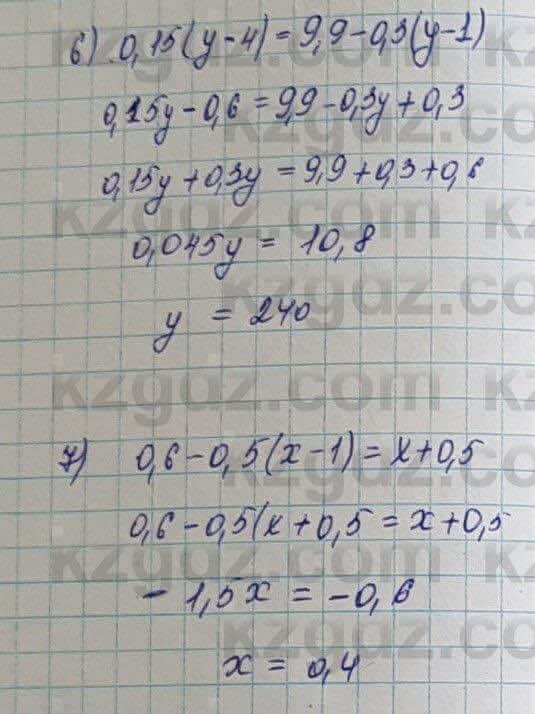 6) 0,15(y-4)=9,9-0,3(y-1)
0,15y-0,6=9,9-0,3y+0,3
0,15y+0,3y=9,9+0,3+0,6
0,045y = 10,8
y = 240
7) 0,6-0,5(x-1)=x+0,5
0,6-0,5(x+0,5=x+0,5
-1,5x = -0,6
x = 0,4
kzgdz.com